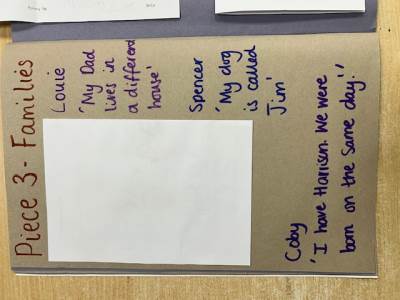 Piece 3 - Families
Louie
'My Dad
lives in
a different
house'
Spencer
'My dog
is called
Jim'
Coby
'I have Harrison. We were
born on the same day!'